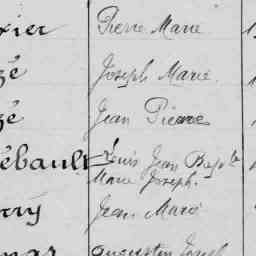 xier Pierre Marie
zé Joseph Marie
zé Jean Pierre
ébault Louis Jean Bapte
Marie Joseph.
rry Jean Marie
Augustin Joseph